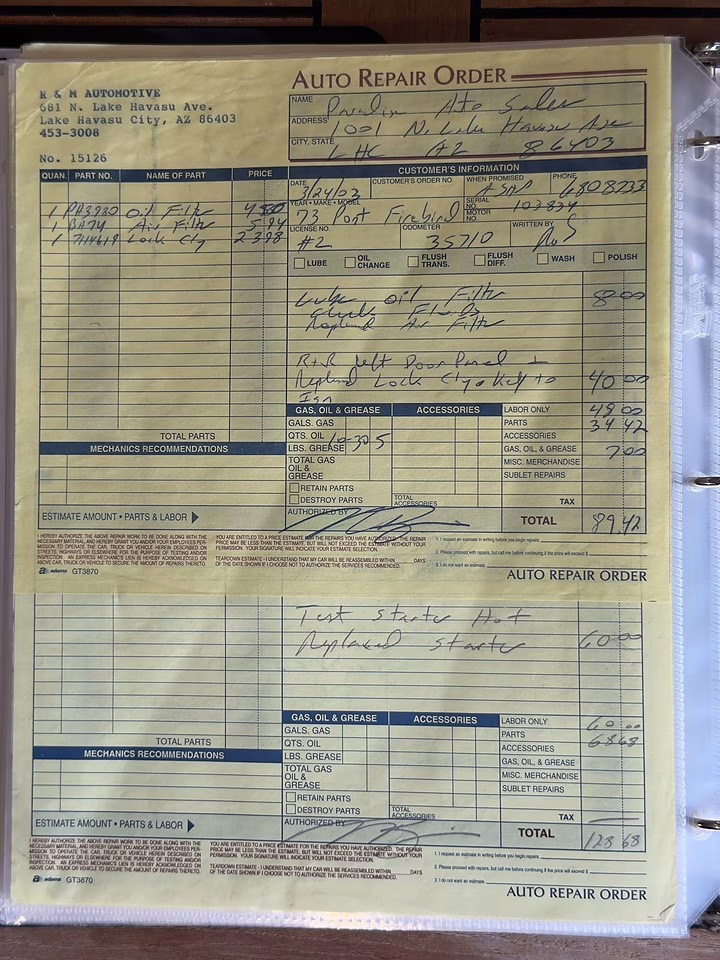 AUTO REPAIR ORDER
R & M AUTOMOTIVE
681 N. Lake Havasu Ave.
Lake Havasu City, AZ 86403
453-3008
No. 15126
NAME Ato Sales
ADDRESS 1001 N. Lake Havasu Ave
CITY, STATE LHC AZ 86403
QUAN. PART NO. NAME OF PART PRICE
1 PH3980 Oil Filtr 4 50
1 BA74 Air Filtr 5.94
1 7114619 Lock Cly 23.98
CUSTOMER'S INFORMATION
DATE 3/24/03 CUSTOMER'S ORDER NO. WHEN PROMISED ASAP PHONE 6808733
YEAR • MAKE • MODEL 73 Pont Firebird SERIAL NO. MOTOR NO. 103834
LICENSE NO. #2 ODOMETER 35710 WRITTEN BY
LUBE OIL CHANGE FLUSH TRANS. FLUSH DIFF. WASH POLISH
Lube Oil Filtr 8 00
Check Fluids
Replaced Air Filtr
R+R left Door Panel +
Replaced Lock Cly & Key to 40 00
Ign
GAS, OIL & GREASE ACCESSORIES
GALS. GAS
QTS. OIL 10-30 5
LBS. GREASE
TOTAL GAS OIL & GREASE
RETAIN PARTS
DESTROY PARTS
TOTAL ACCESSORIES
LABOR ONLY 48 00
PARTS 34 42
ACCESSORIES
GAS, OIL, & GREASE 7 00
MISC. MERCHANDISE
SUBLET REPAIRS
TAX
TOTAL PARTS
MECHANICS RECOMMENDATIONS
ESTIMATE AMOUNT • PARTS & LABOR
AUTHORIZED BY
TOTAL 89.42
I HEREBY AUTHORIZE THE ABOVE REPAIR WORK TO BE DONE ALONG WITH THE
NECESSARY MATERIAL, AND HEREBY GRANT YOU AND/OR YOUR EMPLOYEES PERMISSION
TO OPERATE THE CAR, TRUCK OR VEHICLE HEREIN DESCRIBED ON
STREETS, HIGHWAYS OR ELSEWHERE FOR THE PURPOSE OF TESTING AND/OR
INSPECTION. AN EXPRESS MECHANIC'S LIEN IS HEREBY ACKNOWLEDGED ON
ABOVE CAR, TRUCK OR VEHICLE TO SECURE THE AMOUNT OF REPAIRS THERETO.
YOU ARE ENTITLED TO A PRICE ESTIMATE FOR THE REPAIRS YOU HAVE AUTHORIZED. THE REPAIR
PRICE MAY BE LESS THAN THE ESTIMATE, BUT WILL NOT EXCEED THE ESTIMATE WITHOUT YOUR
PERMISSION. YOUR SIGNATURE WILL INDICATE YOUR ESTIMATE SELECTION.
TEARDOWN ESTIMATE - I UNDERSTAND THAT MY CAR WILL BE REASSEMBLED WITHIN DAYS
OF THE DATE SHOWN IF I CHOOSE NOT TO AUTHORIZE THE SERVICES RECOMMENDED.
1. I request an estimate in writing before you begin repairs.
2. Please proceed with repairs, but call me before continuing if the price will exceed $
3. I do not want an estimate.
adams GT3870
AUTO REPAIR ORDER
Test starter Hot
Replaced starter 60 00
GAS, OIL & GREASE ACCESSORIES
GALS. GAS
QTS. OIL
LBS. GREASE
TOTAL GAS OIL & GREASE
RETAIN PARTS
DESTROY PARTS
TOTAL ACCESSORIES
LABOR ONLY 60.00
PARTS 68 68
ACCESSORIES
GAS, OIL, & GREASE
MISC. MERCHANDISE
SUBLET REPAIRS
TAX
TOTAL PARTS
MECHANICS RECOMMENDATIONS
ESTIMATE AMOUNT • PARTS & LABOR
AUTHORIZED BY
TOTAL 128 68
I HEREBY AUTHORIZE THE ABOVE REPAIR WORK TO BE DONE ALONG WITH THE
NECESSARY MATERIAL, AND HEREBY GRANT YOU AND/OR YOUR EMPLOYEES PERMISSION
TO OPERATE THE CAR, TRUCK OR VEHICLE HEREIN DESCRIBED ON
STREETS, HIGHWAYS OR ELSEWHERE FOR THE PURPOSE OF TESTING AND/OR
INSPECTION. AN EXPRESS MECHANIC'S LIEN IS HEREBY ACKNOWLEDGED ON
ABOVE CAR, TRUCK OR VEHICLE TO SECURE THE AMOUNT OF REPAIRS THERETO.
YOU ARE ENTITLED TO A PRICE ESTIMATE FOR THE REPAIRS YOU HAVE AUTHORIZED. THE REPAIR
PRICE MAY BE LESS THAN THE ESTIMATE, BUT WILL NOT EXCEED THE ESTIMATE WITHOUT YOUR
PERMISSION. YOUR SIGNATURE WILL INDICATE YOUR ESTIMATE SELECTION.
TEARDOWN ESTIMATE - I UNDERSTAND THAT MY CAR WILL BE REASSEMBLED WITHIN DAYS
OF THE DATE SHOWN IF I CHOOSE NOT TO AUTHORIZE THE SERVICES RECOMMENDED.
1. I request an estimate in writing before you begin repairs.
2. Please proceed with repairs, but call me before continuing if the price will exceed $
3. I do not want an estimate.
adams GT3870
AUTO REPAIR ORDER